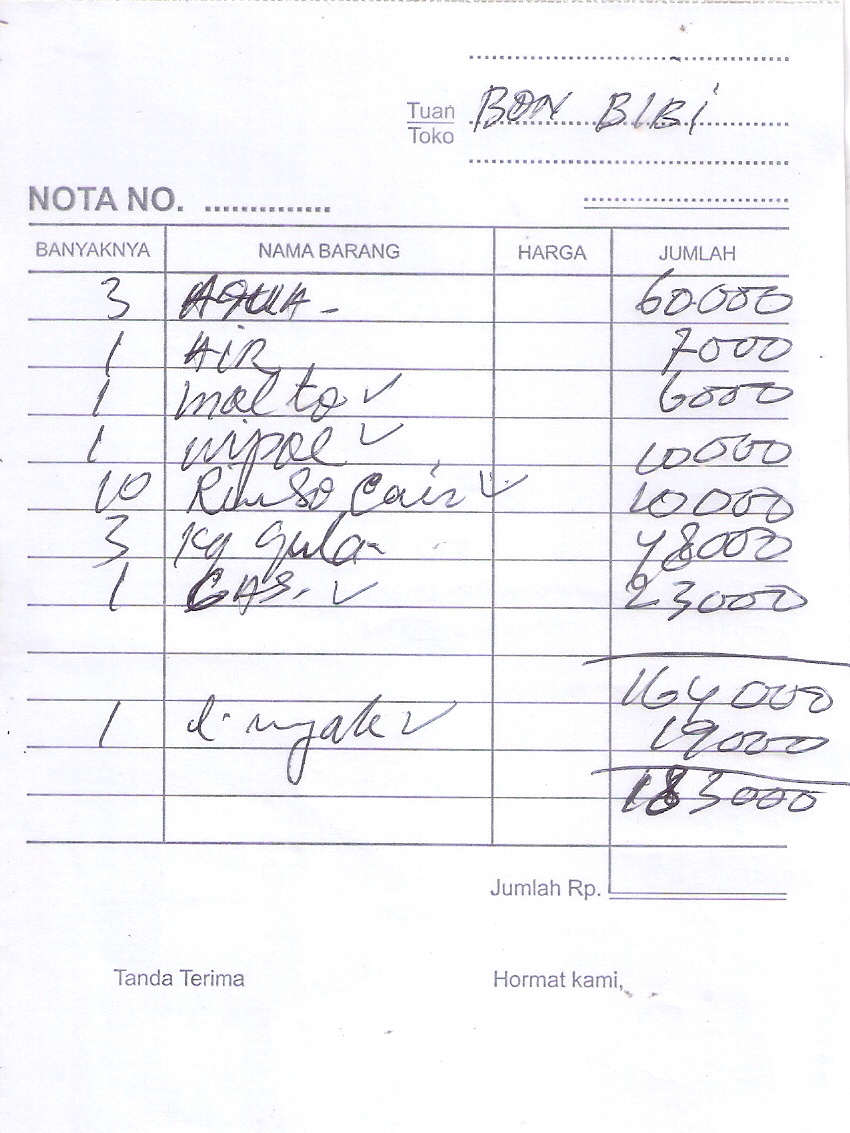 Tuan
Toko BON BIBI
NOTA NO. ..............
BANYAKNYA NAMA BARANG HARGA JUMLAH
3 AQUA - 60.000
1 AIR 7000
1 molto ✓ 6000
1 wipol ✓ 10000
10 Rinso Cair ✓ 10000
3 kg gula 48000
1 GAS. ✓ 23000
164000
1 ✓ 19000
183000
Jumlah Rp.
Tanda Terima Hormat kami,